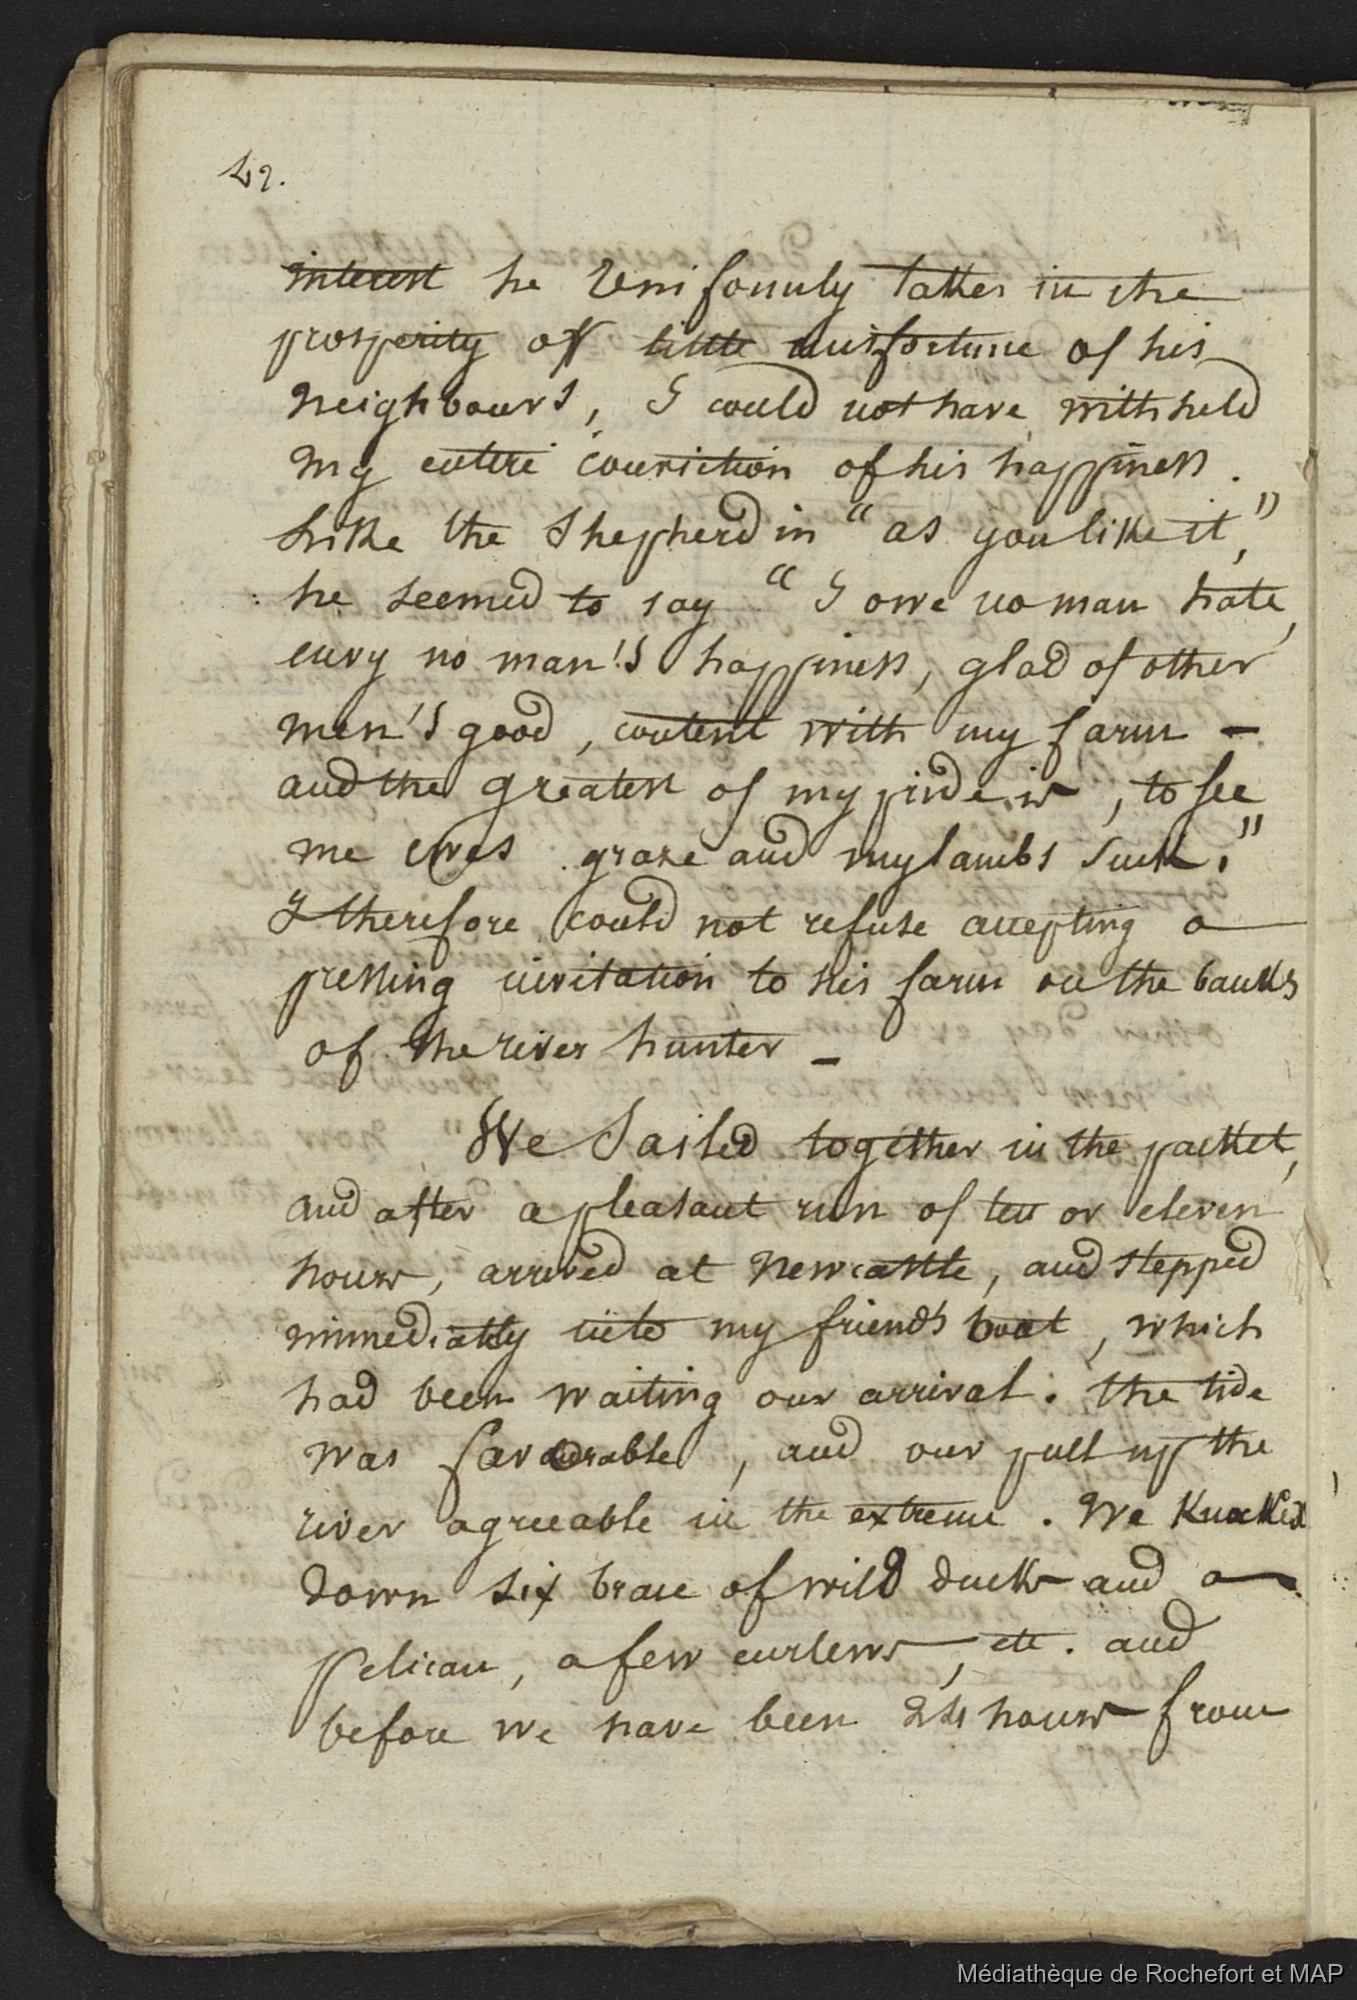 42.
interest he Uniformly takes in the
prosperity of little misfortune of his
neighbours, I could not have withheld
my entire conviction of his happiness.
Like the Shepherd in "as you like it,"
he seemed to say "I owe no man hate,
envy no man's happiness, glad of other
men's good, content with my farm -
and the greatest of my pride is, to see
me ewes graze and my lambs suck."
I therefore could not refuse accepting a
pressing invitation to his farm on the banks
of the river hunter -
We Sailed together in the packet,
and after a pleasant run of ten or eleven
hours, arrived at Newcastle, and stepped
immediatly into my friend's boat, which
had been waiting our arrival. the tide
was favourable, and our pull up the
river agreeable in the extreme. We Knocked
down six brace of wild ducks and a
pelican, a few curlews, etc. and
before we have been 24 hours from
Médiathèque de Rochefort et MAP